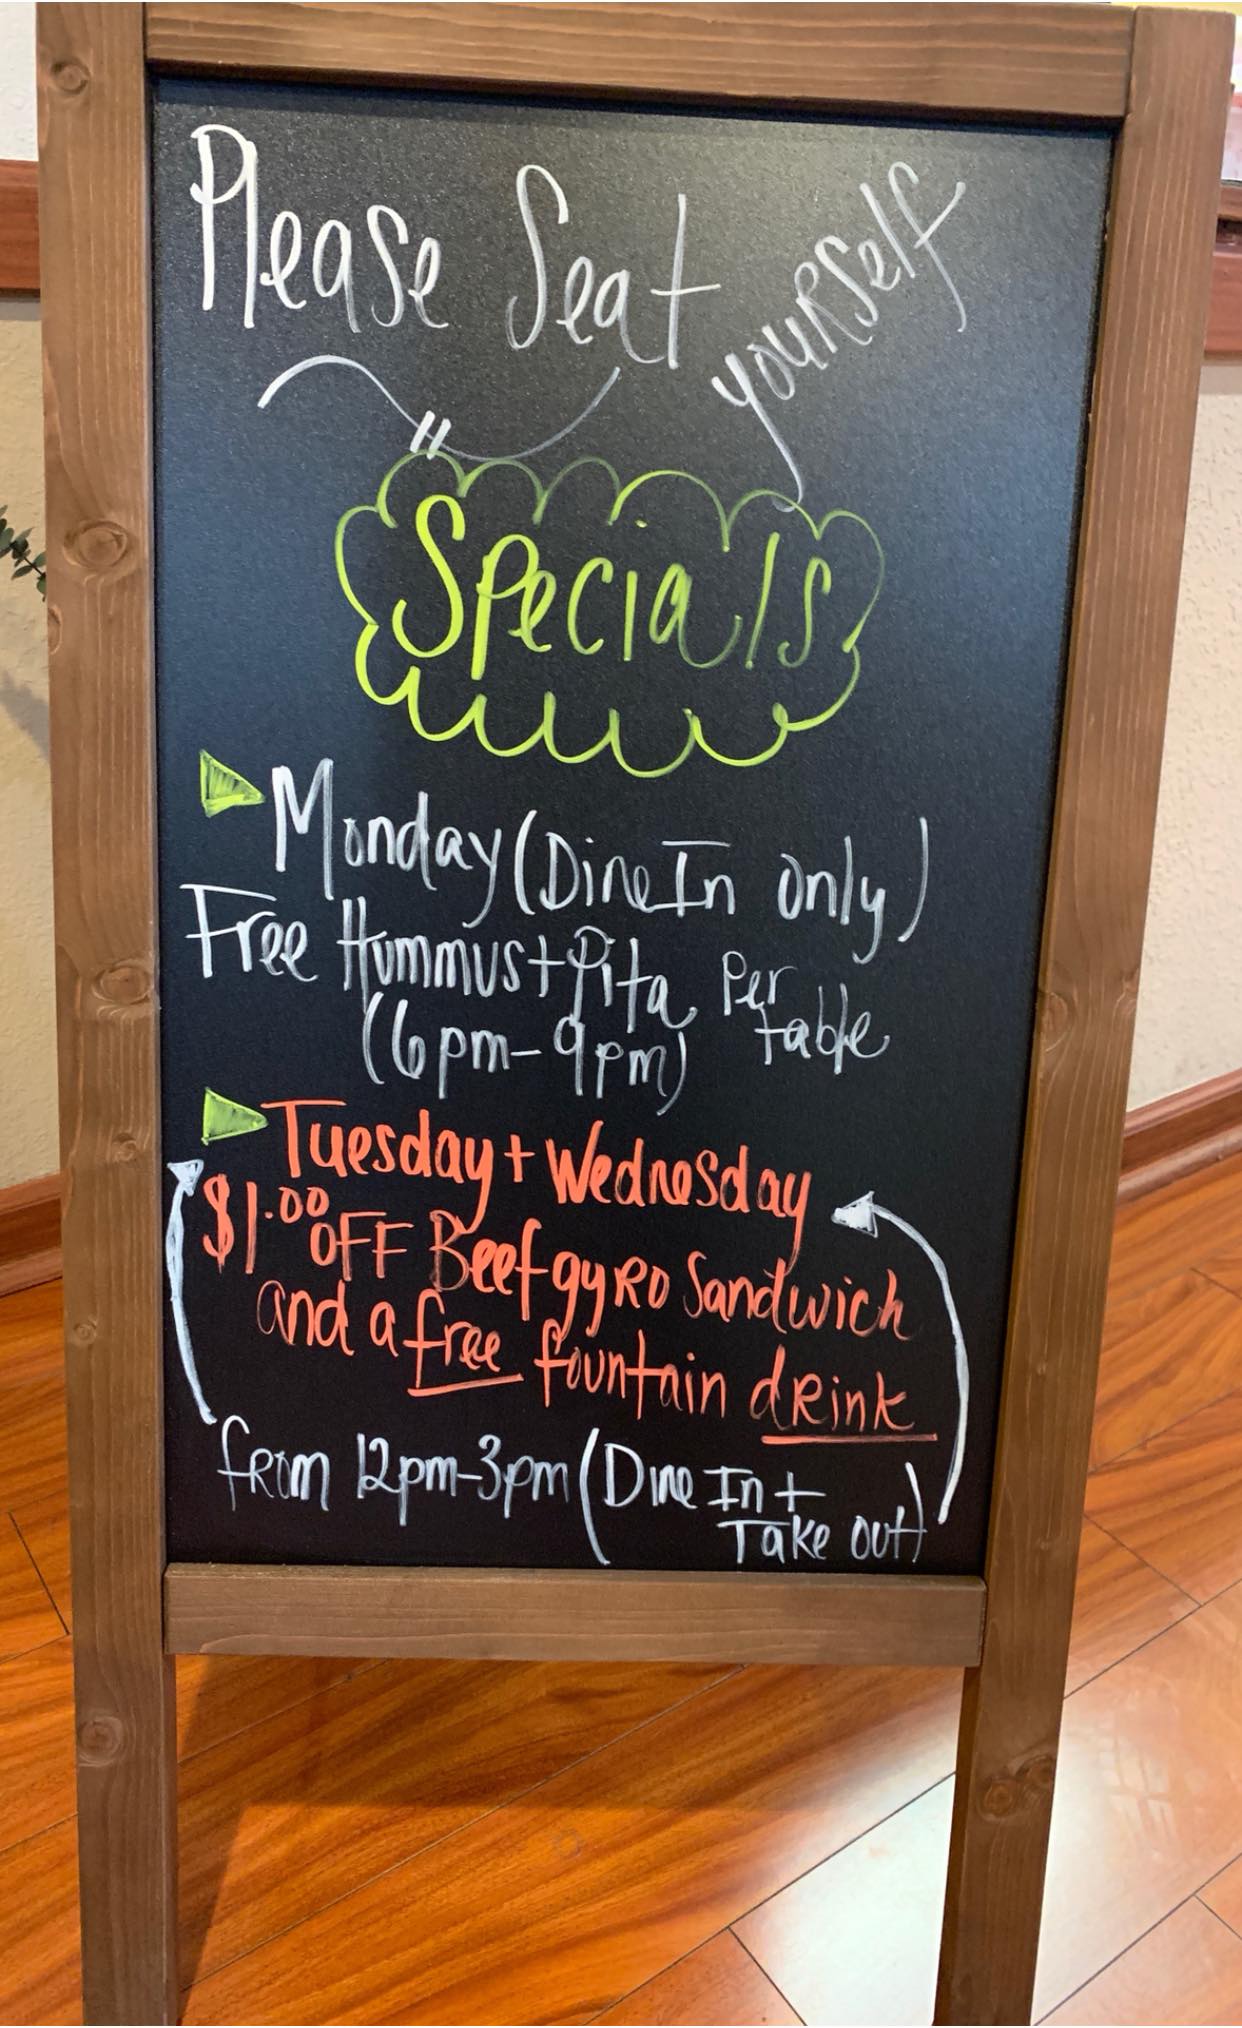 Please Seat yourself
Specials
Monday (Dine In only)
Free Hummus + Pita Per table
(6pm-9pm)
Tuesday + Wednesday
$1.00 OFF Beef gyRO Sandwich
and a free fountain dRink
fRom 12pm-3pm (Dine In +
Take out)